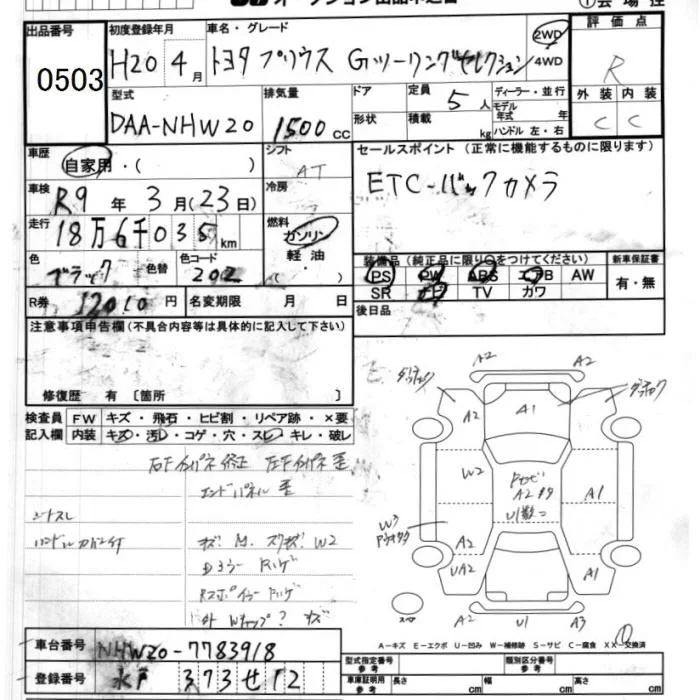 出品番号
0503
初度登録年月
H20 4月
車名・グレード
トヨタ プリウス Gツーリングセレクション
2WD
4WD
評価点
R
型式
DAA-NHW20
排気量
1500 cc
ドア
形状
定員
5人
積載
kg
ディーラー・並行
モデル
年式 年
ハンドル 左・右
外装 内装
C C
車歴
自家用・( )
シフト
AT
セールスポイント (正常に機能するものに限ります)
ETC-バックカメラ
車検
R9年 3月(23日)
冷房
走行
18万6千035km
燃料
ガソリン
軽油
色
ブラック
色替
色コード
202
装備品(純正品に限り○をつけてください)
新車保証書
PS PW ABS エアB AW
SR ナビ TV カワ
有・無
R券
12010円
名変期限 月 日
後日品
注意事項申告欄(不具合内容等は具体的に記入して下さい)
修復歴 有 〔箇所 〕
検査員
記入欄
FW キズ・飛石・ヒビ割・リペア跡・×要
内装 キズ・汚レ・コゲ・穴・スレ・キレ・破レ
右Fインパネ修正 左Fインパネ歪
エンドパネル歪
シートスレ
ハンドルカバー付
A2 A2
A2 A1 A2
W2
A2
A1
W3
A2
UA2 A1
A2 U1 A3
スペア
A-キズ E-エクボ U-凹み W-補修跡 S-サビ C-腐食 XX-交換済
車台番号
NHW20-7783918
登録番号
水戸 373 せ 12
型式指定番号
参考
類別区分番号
車庫証明用
参考
長さ cm 幅 cm 高さ cm